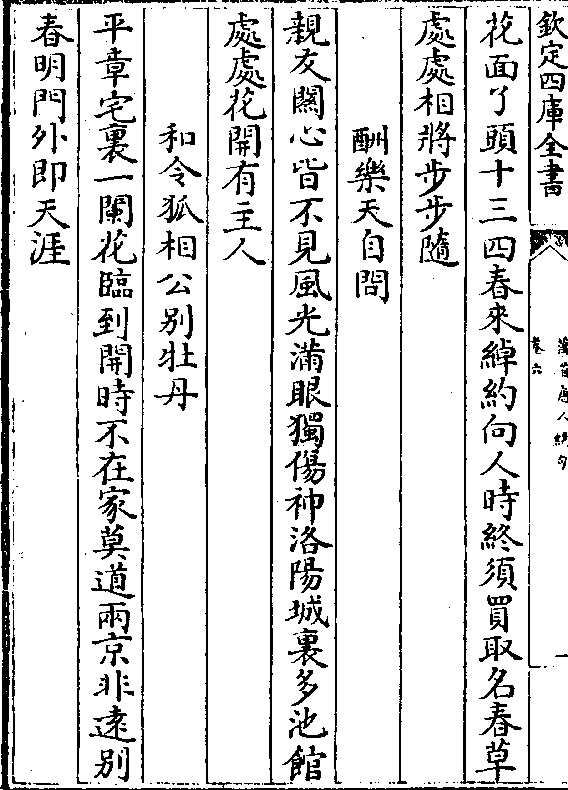 欽定四庫全書
萬首唐人絶句
卷六
一
花面丫頭十三四春來綽約向人時終須買取名春草
處處相將步步隨
酬樂天自問
親友關心皆不見風光滿眼獨傷神洛陽城裏多池館
處處花開有主人
和令狐相公别牡丹
平章宅裏一闌花臨到開時不在家莫道兩京非遠别
春明門外即天涯